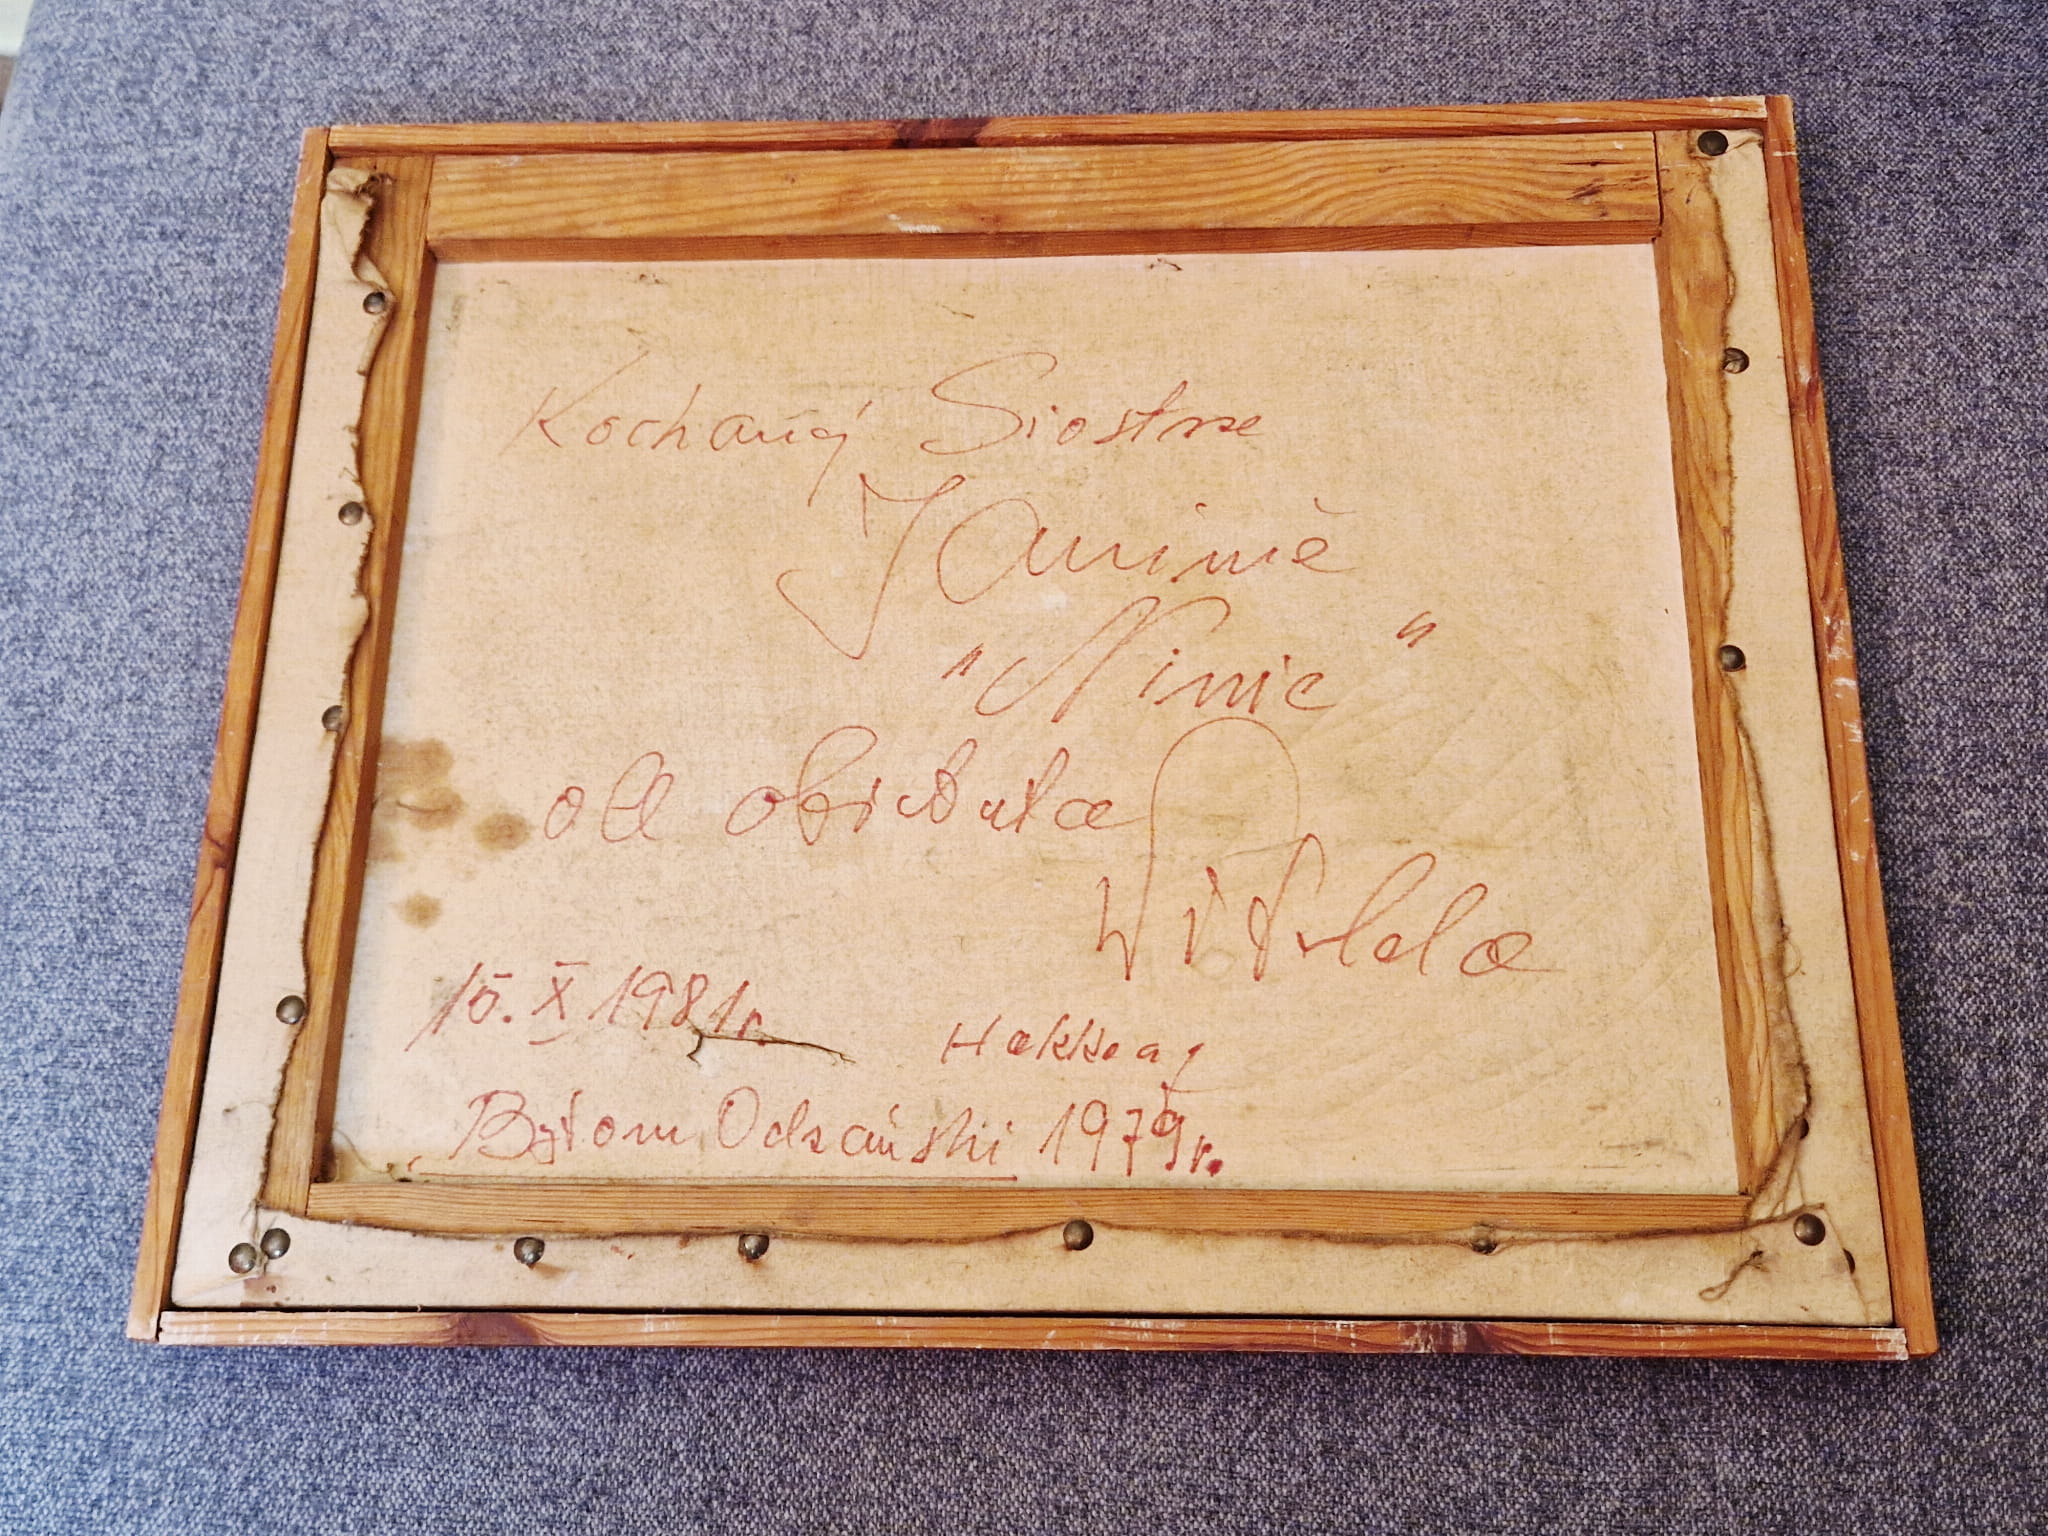 Kochanej Siostrze
Janinie
"Ninie"
od
Witolda
10. X 1981r.
Bytom Odrzański 1979r.